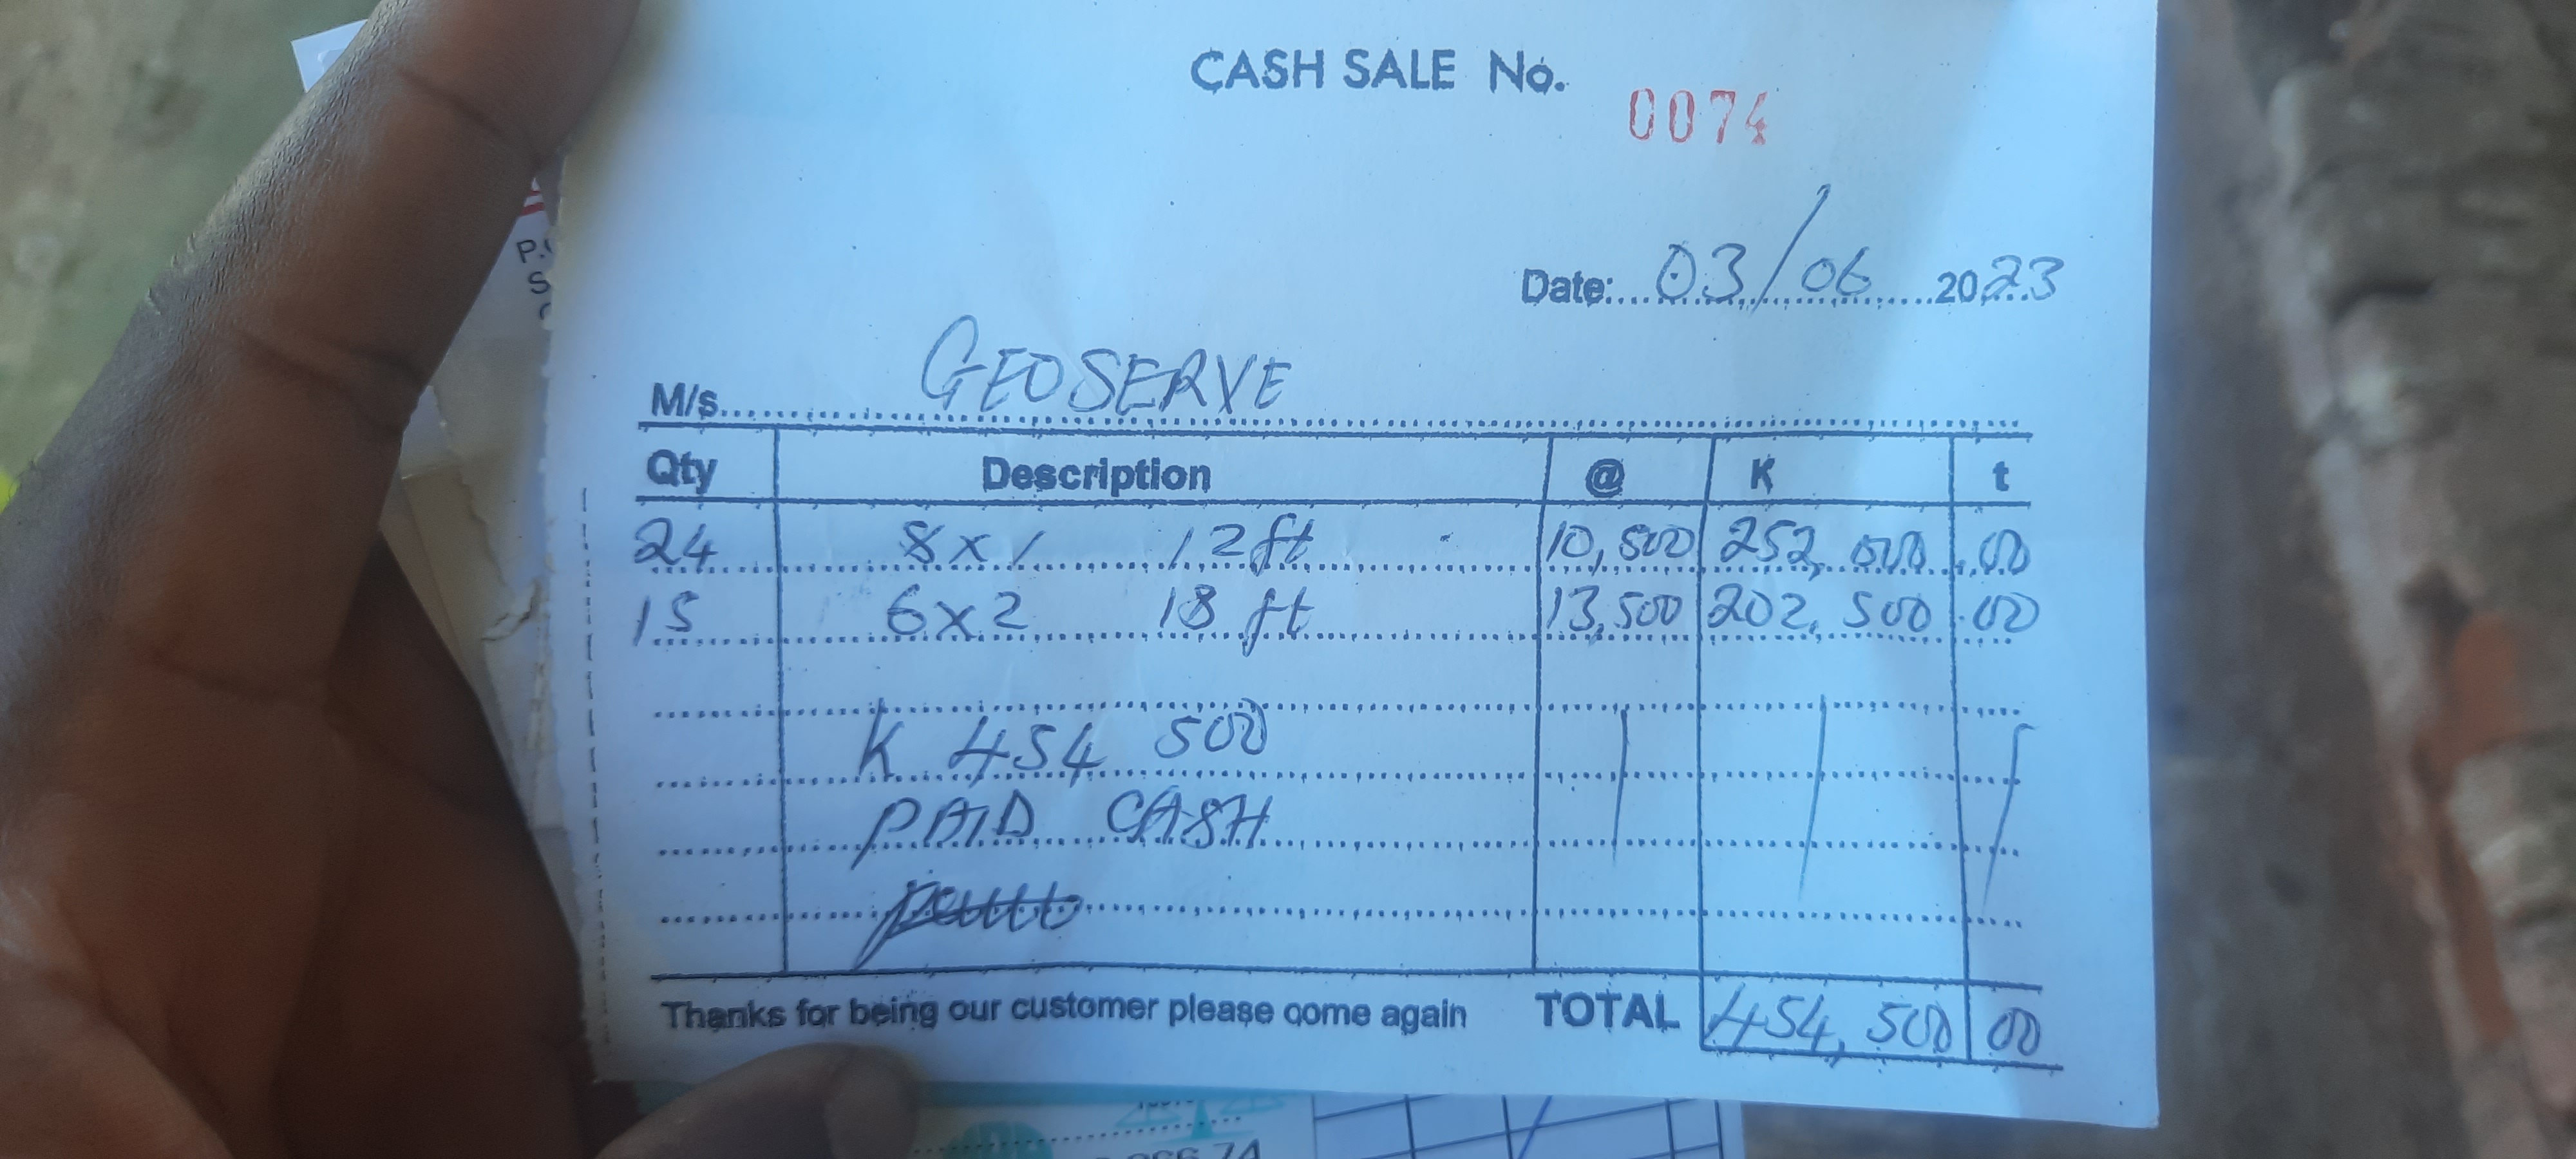 CASH SALE No. 0074
Date: 03/06 2023
M/s GEOSERVE
Qty Description @ K t
24 8x1 12ft 10,500 252,000 00
15 6x2 18ft 13,500 202,500 00
K 454 500
PAID CASH
Thanks for being our customer please come again TOTAL 454,500 00